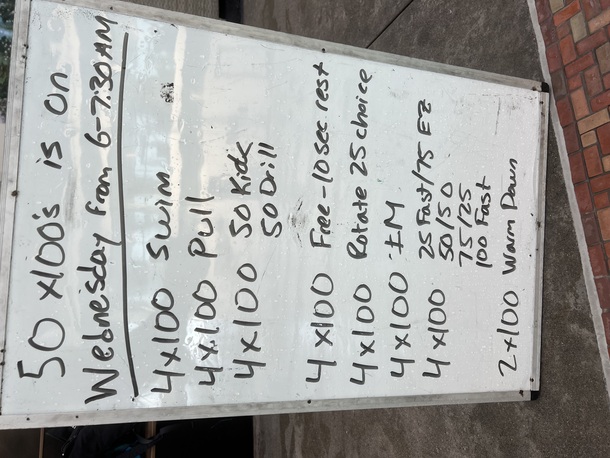 50 x100's is on
Wednesday from 6-7:30AM
4x100 Swim
4x100 Pull
4x100 50 Kick
50 Drill
4x100 Free-10sec rest
4x100 Rotate 25 choice
4x100 IM
4x100 25 Fast/75 EZ
50/50
75/25
100 Fast
2x100 Warm Down